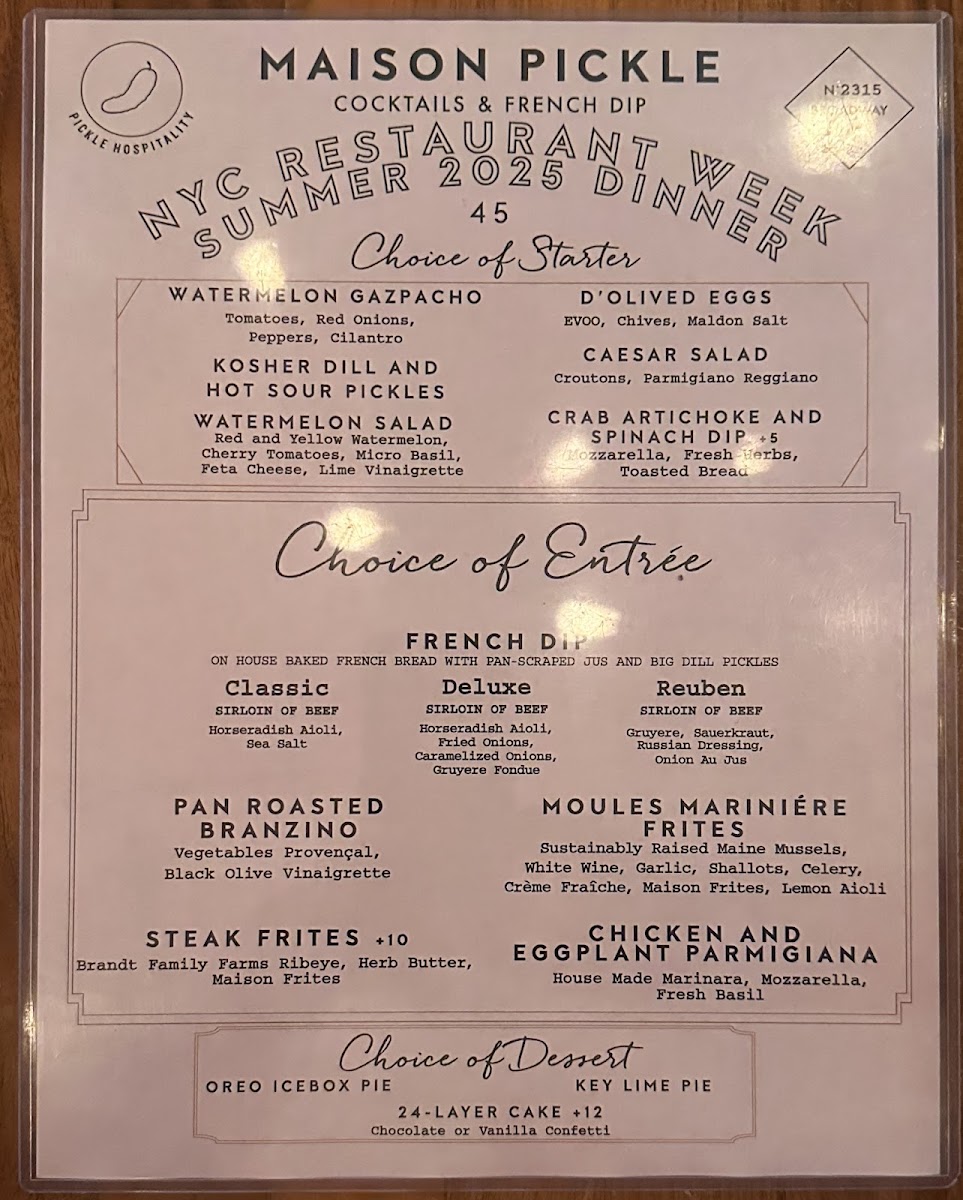 MAISON PICKLE
COCKTAILS & FRENCH DIP
PICKLE HOSPITALITY
Nº2315
BROADWAY
NYC RESTAURANT WEEK
SUMMER 2025 DINNER
45
Choice of Starter
WATERMELON GAZPACHO
Tomatoes, Red Onions,
Peppers, Cilantro
KOSHER DILL AND
HOT SOUR PICKLES
WATERMELON SALAD
Red and Yellow Watermelon,
Cherry Tomatoes, Micro Basil,
Feta Cheese, Lime Vinaigrette
D'OLIVED EGGS
EVOO, Chives, Maldon Salt
CAESAR SALAD
Croutons, Parmigiano Reggiano
CRAB ARTICHOKE AND
SPINACH DIP +5
Mozzarella, Fresh Herbs,
Toasted Bread
Choice of Entrée
FRENCH DIP
ON HOUSE BAKED FRENCH BREAD WITH PAN-SCRAPED JUS AND BIG DILL PICKLES
Classic
SIRLOIN OF BEEF
Horseradish Aioli,
Sea Salt
Deluxe
SIRLOIN OF BEEF
Horseradish Aioli,
Fried Onions,
Caramelized Onions,
Gruyere Fondue
Reuben
SIRLOIN OF BEEF
Gruyere, Sauerkraut,
Russian Dressing,
Onion Au Jus
PAN ROASTED
BRANZINO
Vegetables Provençal,
Black Olive Vinaigrette
MOULES MARINIÉRE
FRITES
Sustainably Raised Maine Mussels,
White Wine, Garlic, Shallots, Celery,
Crème Fraîche, Maison Frites, Lemon Aioli
STEAK FRITES +10
Brandt Family Farms Ribeye, Herb Butter,
Maison Frites
CHICKEN AND
EGGPLANT PARMIGIANA
House Made Marinara, Mozzarella,
Fresh Basil
Choice of Dessert
OREO ICEBOX PIE
KEY LIME PIE
24-LAYER CAKE +12
Chocolate or Vanilla Confetti